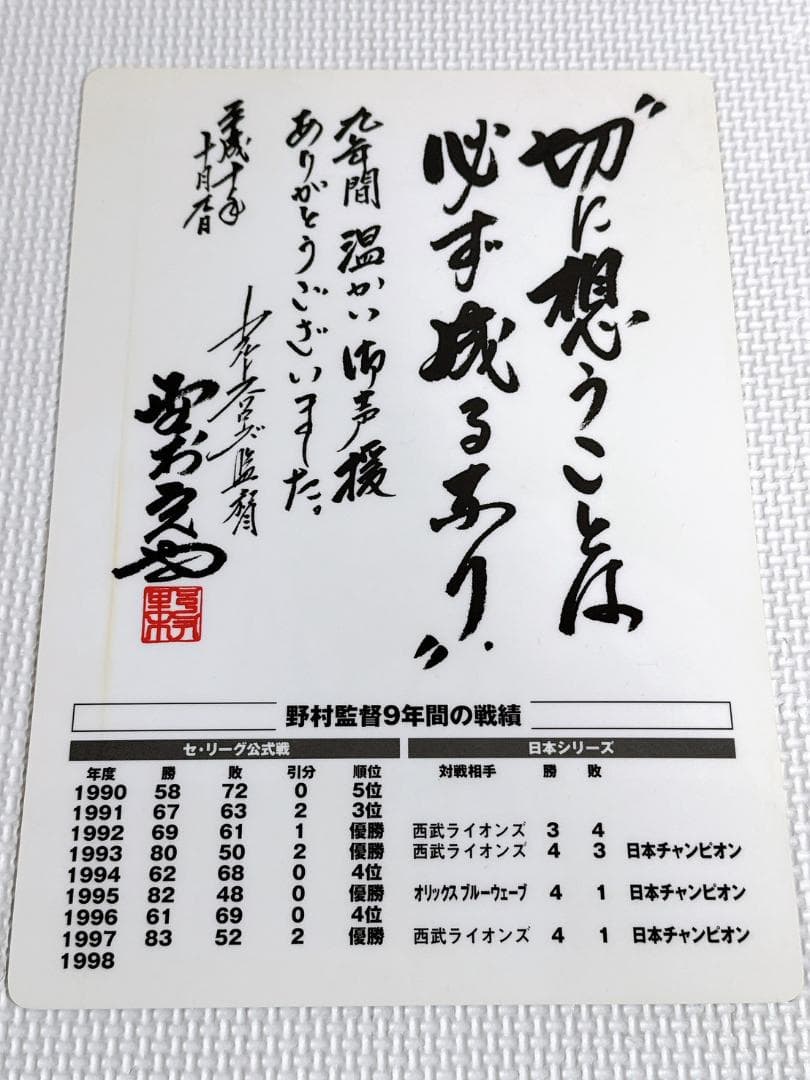 “切に想うことは
必ず成るなり”
九年間 温かい御声援
ありがとうございました。
平成十年
十月九日
ヤクルトスワローズ監督
野村克也
野村
野村監督9年間の戦績
セ・リーグ公式戦 日本シリーズ
年度 勝 敗 引分 順位 対戦相手 勝 敗
1990 58 72 0 5位
1991 67 63 2 3位
1992 69 61 1 優勝 西武ライオンズ 3 4
1993 80 50 2 優勝 西武ライオンズ 4 3 日本チャンピオン
1994 62 68 0 4位
1995 82 48 0 優勝 オリックスブルーウェーブ 4 1 日本チャンピオン
1996 61 69 0 4位
1997 83 52 2 優勝 西武ライオンズ 4 1 日本チャンピオン
1998